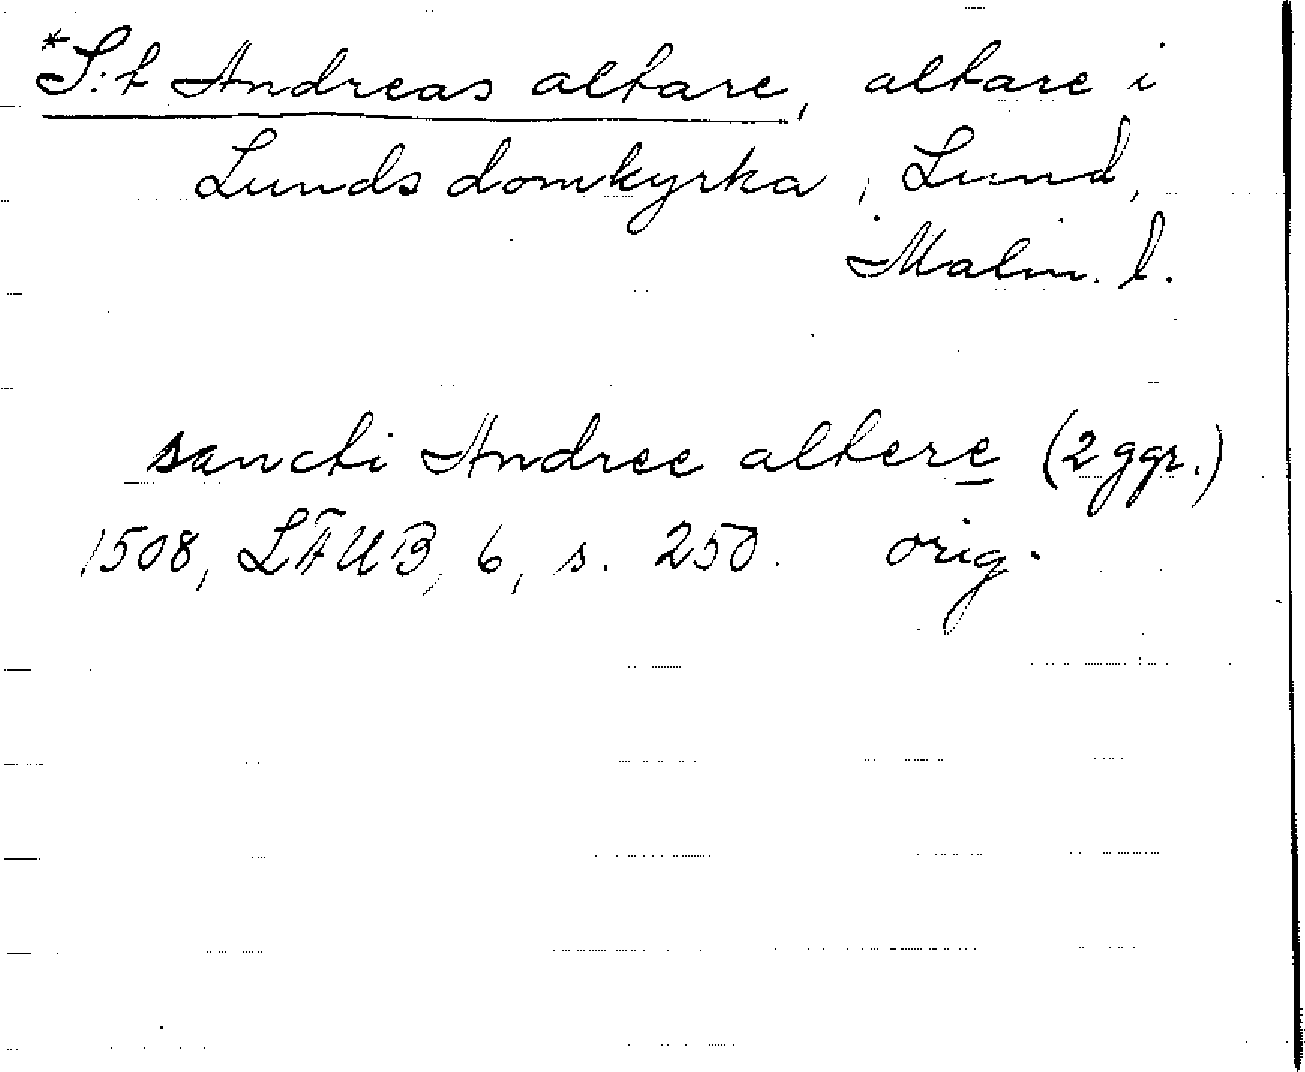 *S:t Andreas altare, altare i
Lunds domkyrka, Lund,
Malm. l.
sancti Andree altere (2 ggr.)
1508, LÄUB, 6, s. 250. orig.